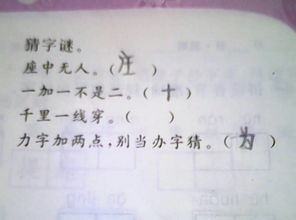 猜字谜。
座中无人。(庄)
一加一不是二。(十)
千里一线穿。(  )
力字加两点,别当办字猜。(为)